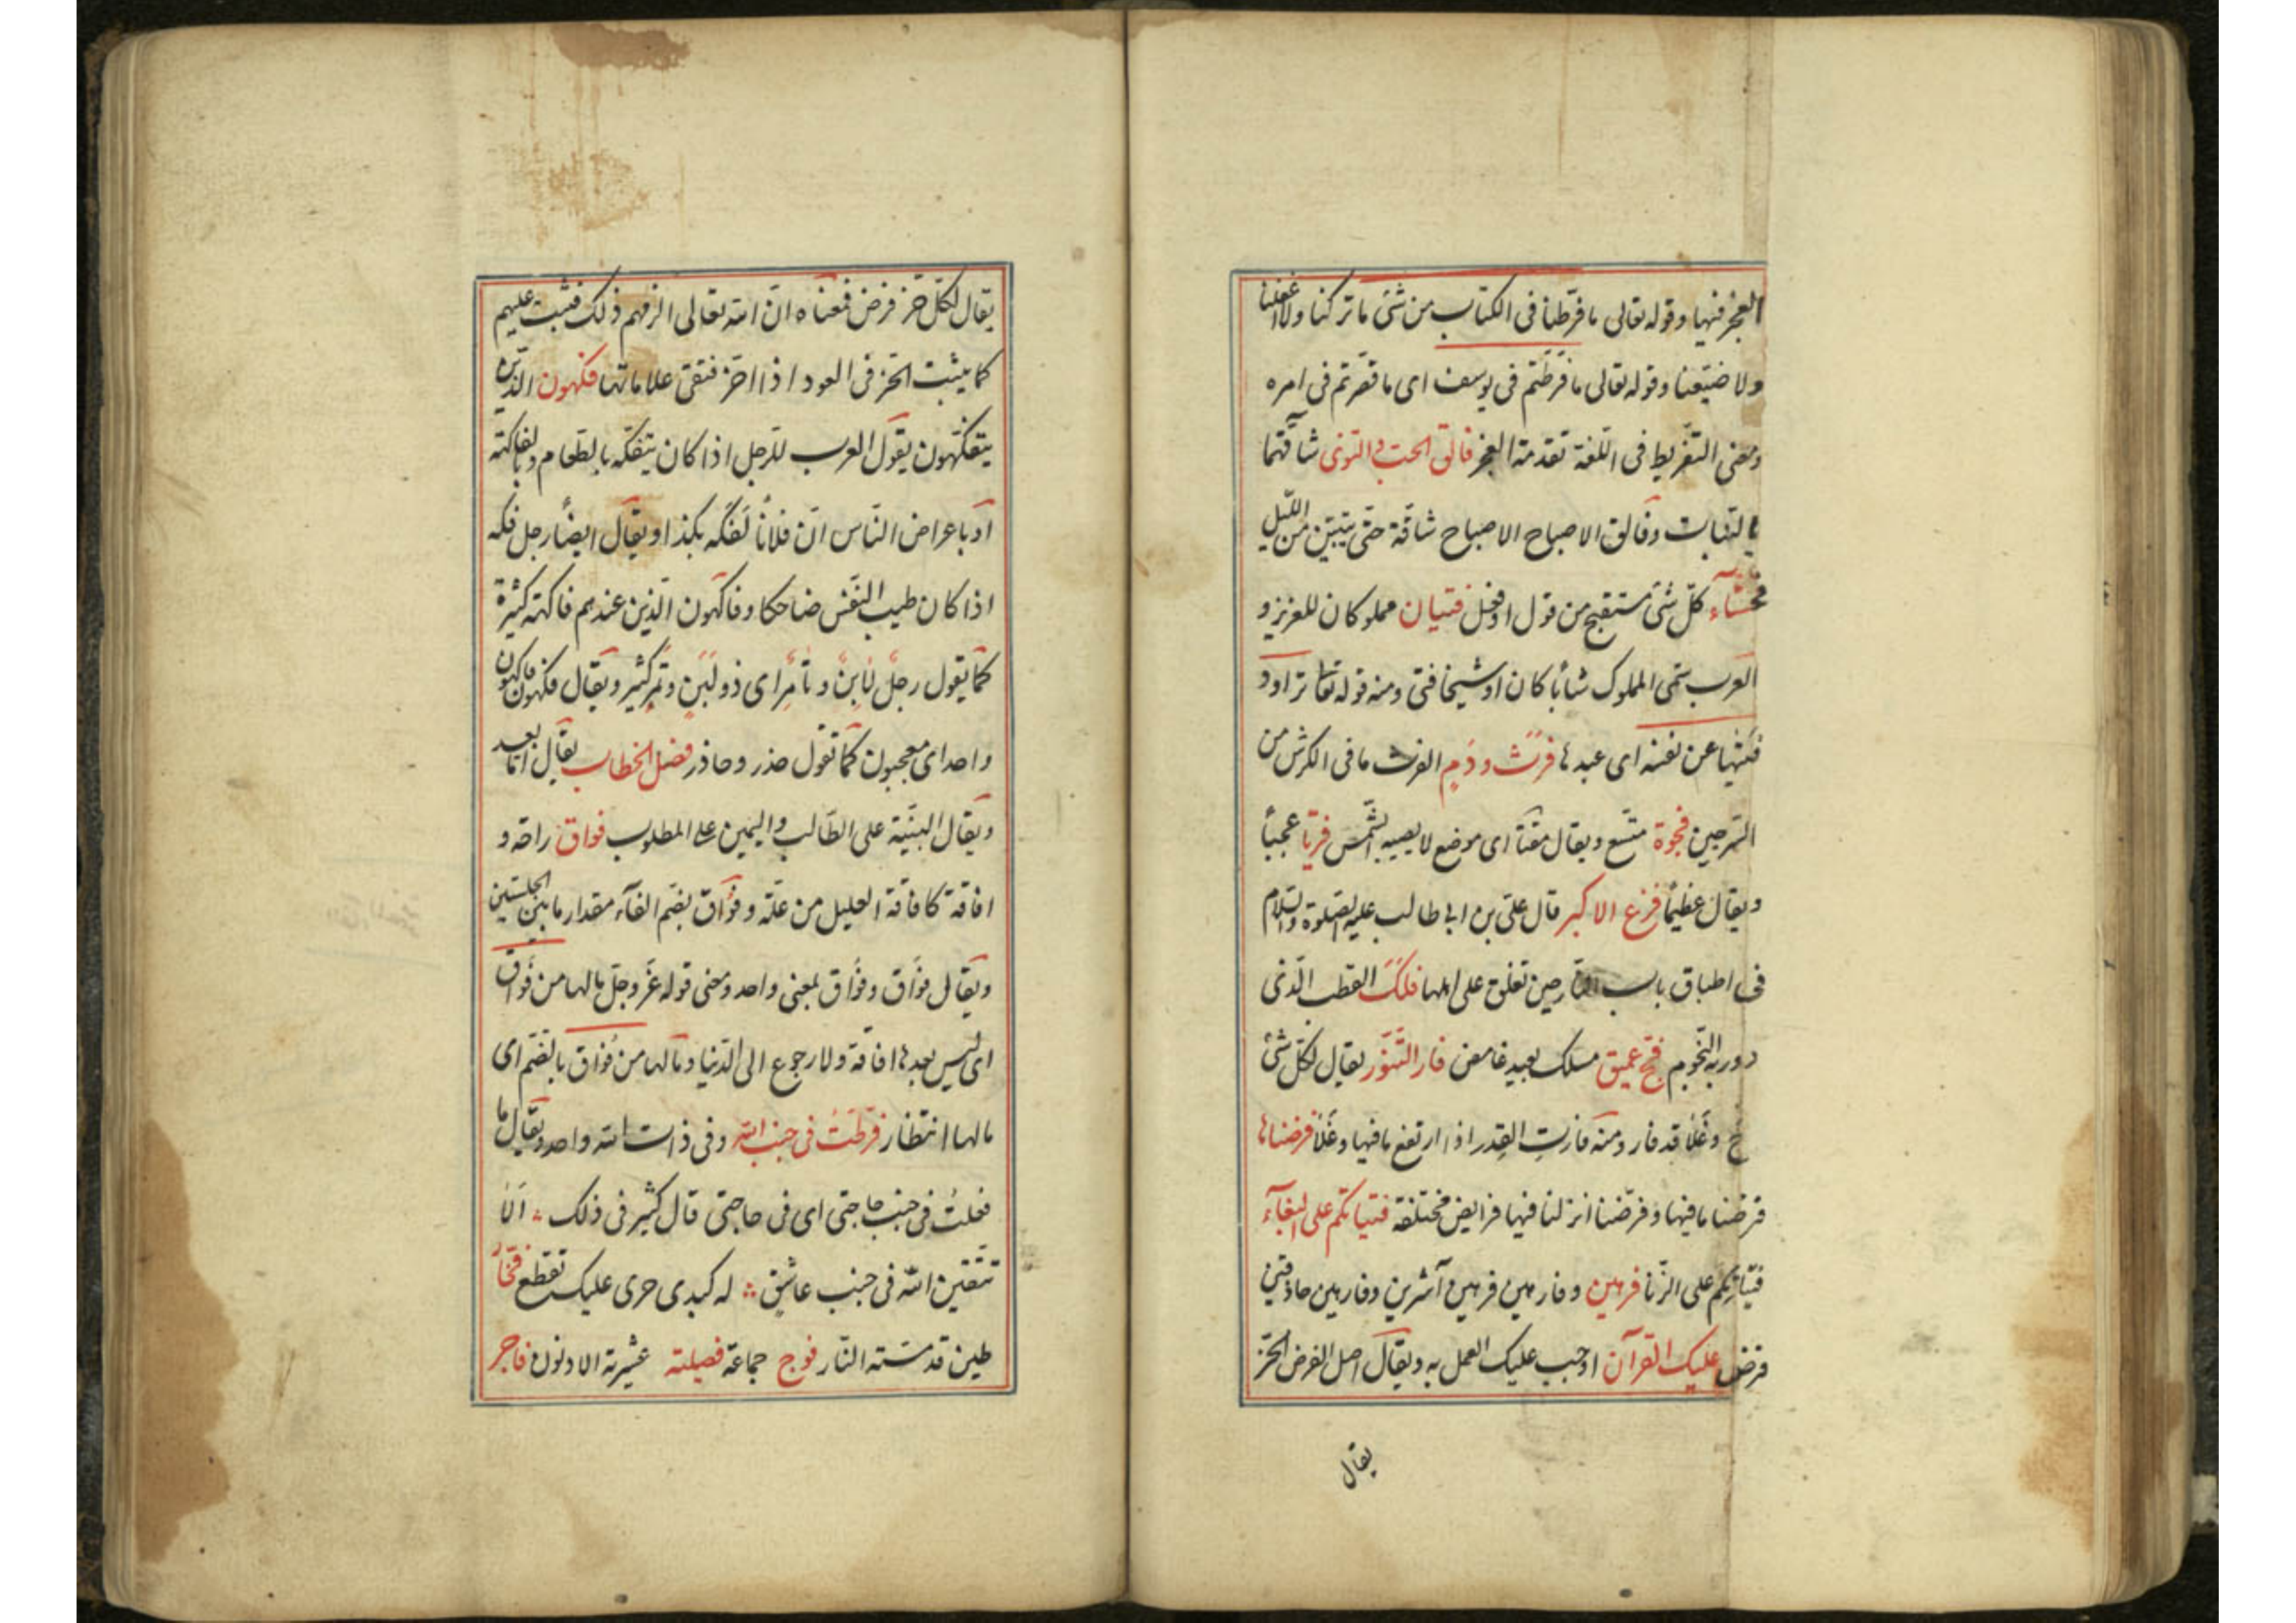 العجز فيها وقوله تعالى ما فرّطنا فى الكتاب من شئ ما تركنا ولا اغفلنا
ولا ضيّعنا وقوله تعالى ما فرّطتم فى يوسف اى ما قصّرتم فى امره
ومعنى التفريط فى اللّغة تقدمة العجز فالق الحبّ والنّوى شاقّهما
بالنّبات وفالق الاصباح الاصباح شاقّة حتّى يتبيّن من اللّيل
فحشآء كلّ شئ مستقبح من قول او فعل فتيان مملوكان للعزيز و
العرب تسمّى المملوك شابّا كان او شيخا فتى ومنه قوله تعا تراود
فتيها عن نفسه اى عبدها فرث ودم الفرث ما فى الكرش من
السّرجين فجوة متّسع ويقال مقنأة اى موضع لا يصيبه الشّمس فريّا عجباً
ويقال عظيمًا فزع الاكبر قال علىّ بن ابى طالب عليه الصّلوة والسّلام
فى اطباق باب النّار حين تغلق على اهلها فلك القطب الّذى
دور به النّجوم فجّ عميق مسلك بعيد غامض فار التّنّور يقال لكلّ شئ
ج وغلا قد فار ومنه فارت القدر اذا ارتفع ما فيها وغلا فرضناها
فرضنا ما فيها وفرّضنا انزلنا فيها فرايض مختلفة فتياتكم على البغآء
فتياتكم على الزّنا فرهين وفارهين فرهين آشرين وفارهين حاذقين
فرض عليك القرآن اوجب عليك العمل به ويقال اصل الفرض الحزّ
يقال
يقال لكلّ حزّ فرض فمعناه انّ اللّه تعالى الزمهم ذلك فثبت عليهم
كما يثبت الحزّ فى العود اذا احزّ فتبقى علاماتها فكهون الّذين
يتفكّهون يقول العرب للرّجل اذا كان يتفكّه بالطّعام وبالفاكهة
او باعراض النّاس انّ فلاناً لفكه بكذا ويقال ايضاً رجل فكه
اذا كان طيب النّفس ضاحكا وفاكهون الّذين عندهم فاكهة كثيرة
كما يقول رجل لابن وتامر اى ذو لبن وتمر كثير ويقال فكهون فاكهون
واحد اى معجبون كما تقول حذر وحاذر فصل الخطاب يقال امّا بعد
ويقال البيّنة على الطّالب واليمين على المطلوب فواق راحة و
افاقة كافاقة العليل من علّته وفواق بضم الفآء مقدار ما بين الحلبتين
ويقال فواق وفواق بمعنى واحد ومعنى قوله عزّ وجلّ ما لها من فواق
اى ليس بعدها افاقة ولا رجوع الى الدّنيا وما لها من فواق بالضّم اى
ما لها انتظار فرّطت فى جنب اللّه وفى ذات اللّه واحد ويقال ما
فعلت فى جنب حاجتى اى فى حاجتى قال كثير فى ذلك الا
تتقين اللّه فى جنب عاشق له كبدى حرى عليك تقطع فخّار
طين قد مسّته النّار فوج جماعة فصيلته عشيرته الادنون فاجر